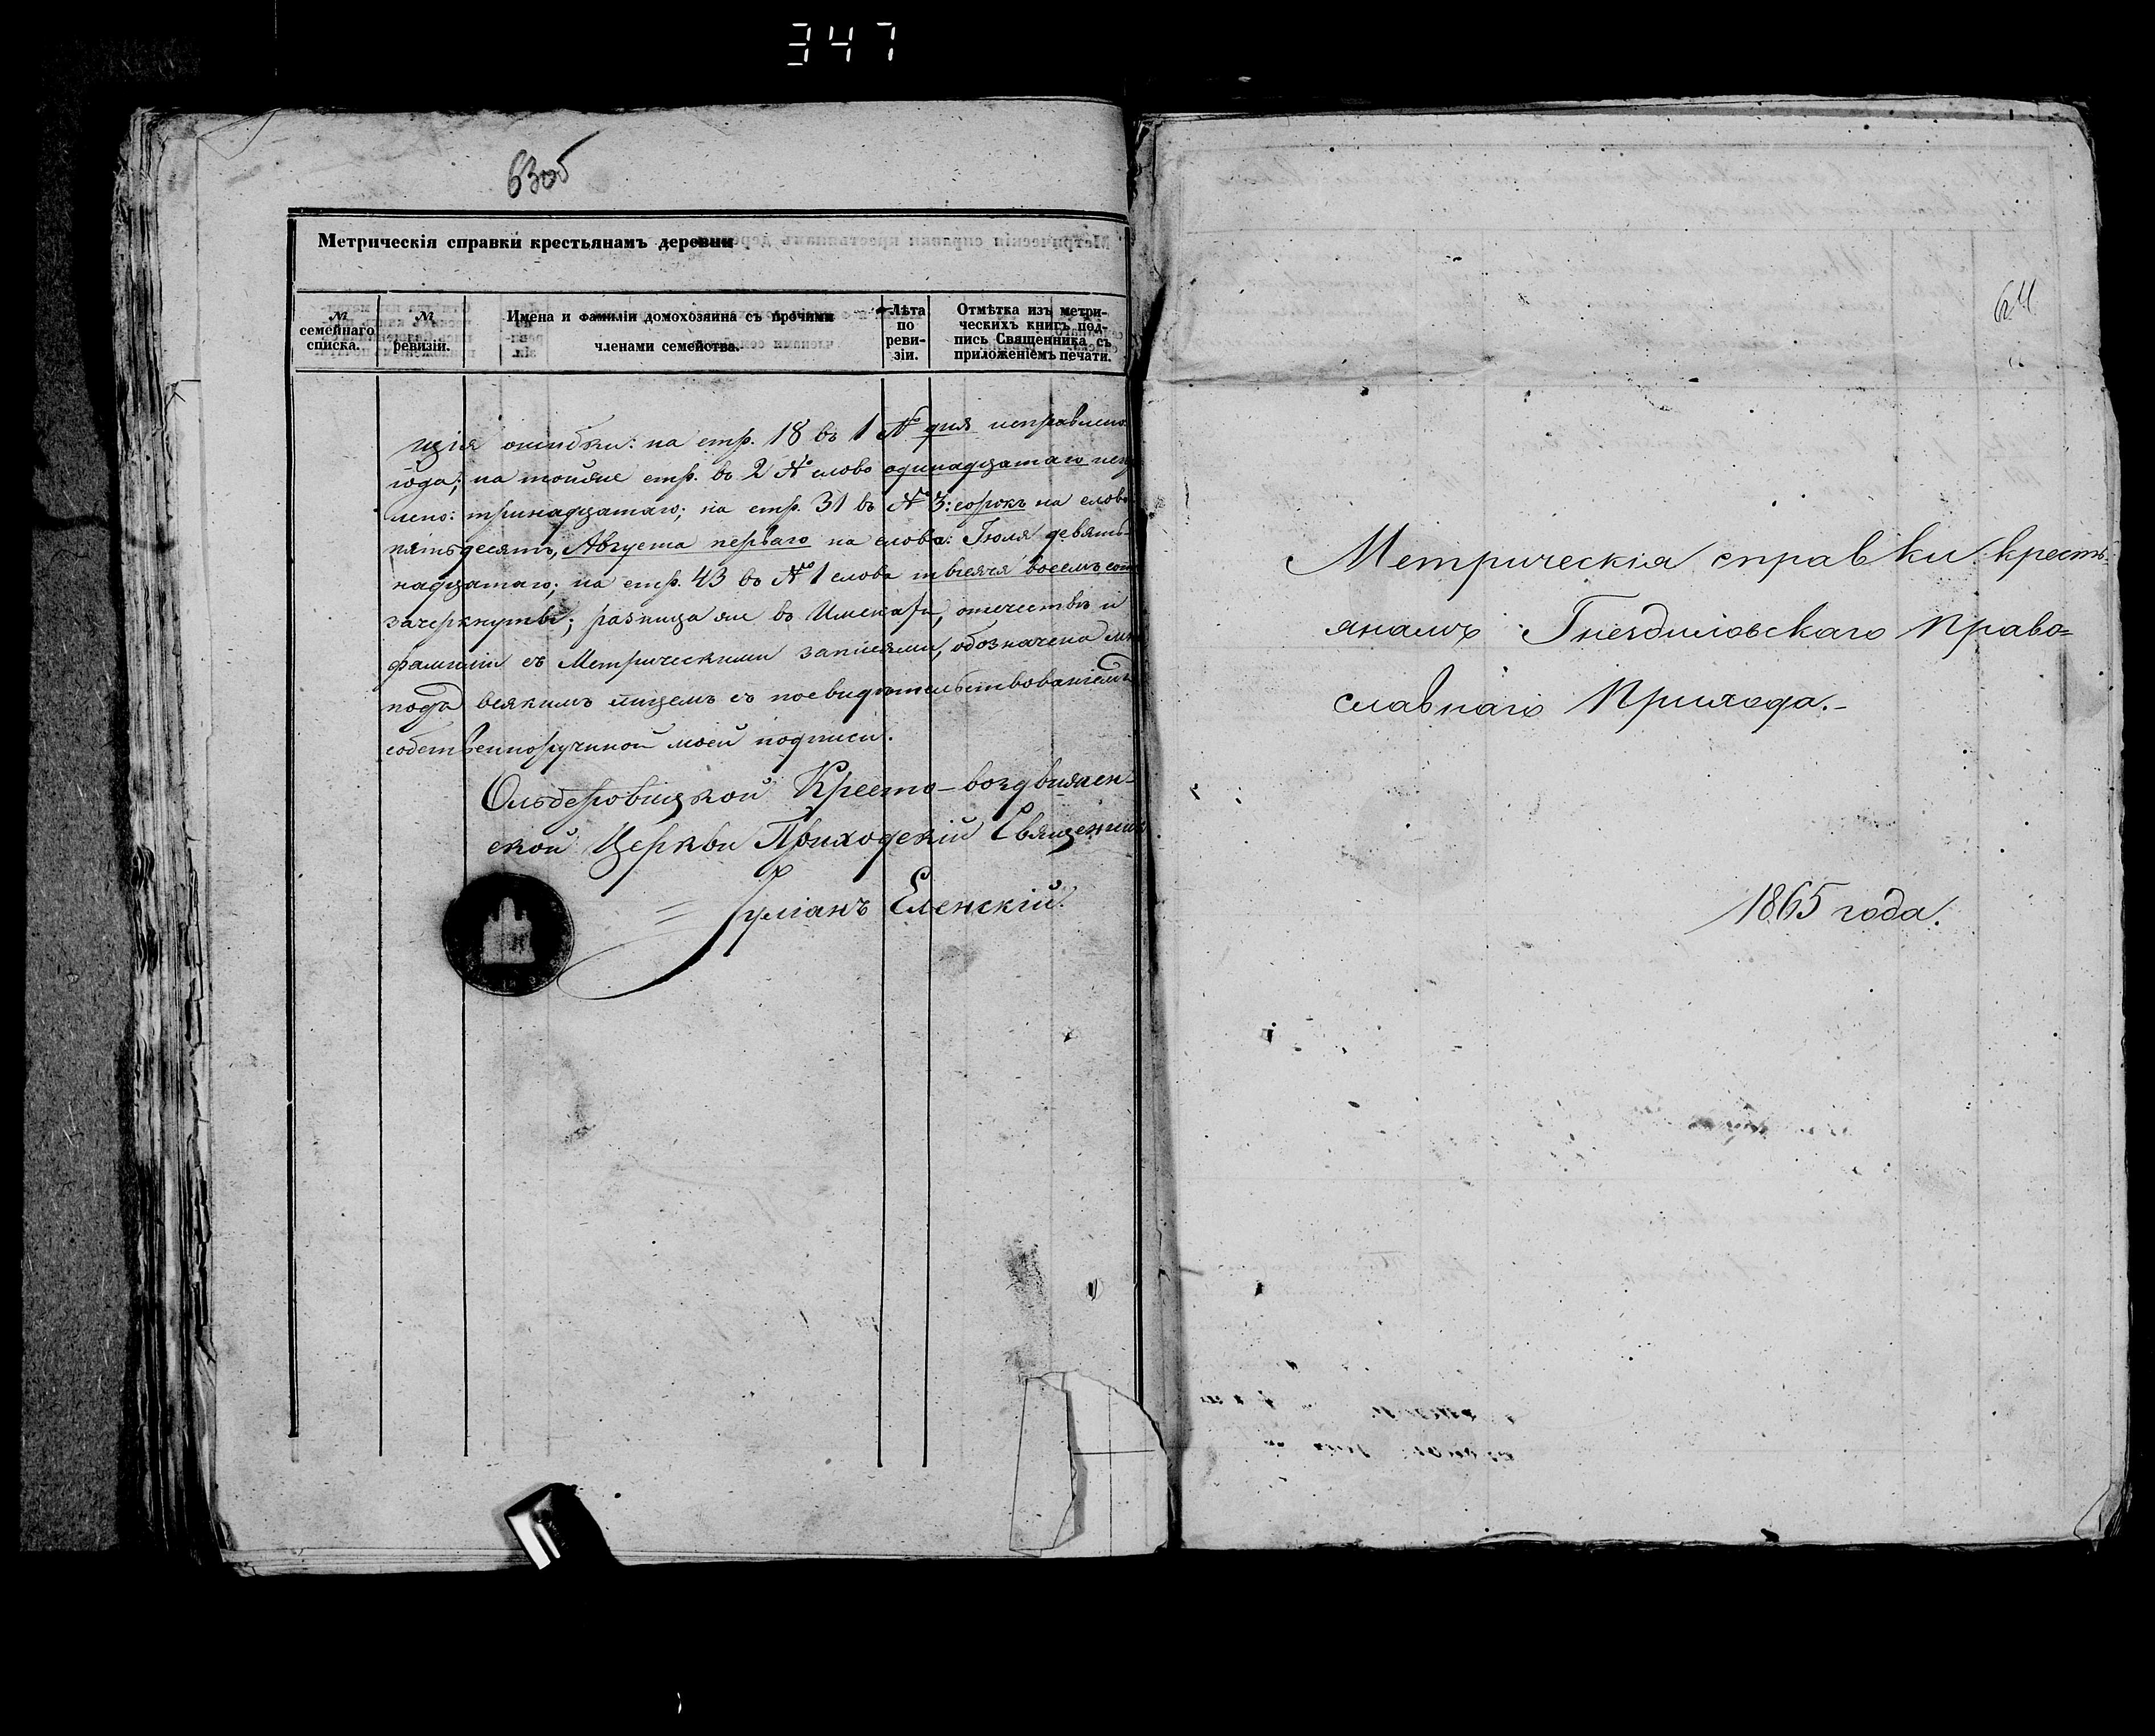 347
63об
Метрическія справки крестьянамъ деревни
№ семейнаго списка.
№ ревизіи.
Имена и фамиліи домохозяина съ прочими членами семейства.
Лѣта по реви-зіи.
Отмѣтка изъ метри-ческихъ книгъ под-пись Священника съ приложеніемъ печати.
щія ошибки: на стр. 18 въ 1 № дня исправлено
года; на тойже стр. въ 2 № слово одинадцатаго
лено: тринадцатаго; на стр. 31 въ № 3: сорокъ на слово
пятьдесятъ, Августа перваго на слова: Іюля девять-
надцатаго; на стр. 43 въ № 1 слова тысяча восемь сот
зачеркнуты; разница же въ Именахъ, отечествѣ и
фамиліи съ Метрическими записями, обозначена
подъ всякимъ лицемъ съ посвидѣтельствованіемъ
собственноручной моей подписи.
Ольберовицкой Кресто-воздвижен-
ской Церкви Приходскій Священникъ
Іуліанъ Еленскій.
64
Метрическія справки кресть-
янамъ Гнездиловскаго Право=
славнаго Прихода.-
1865 года.